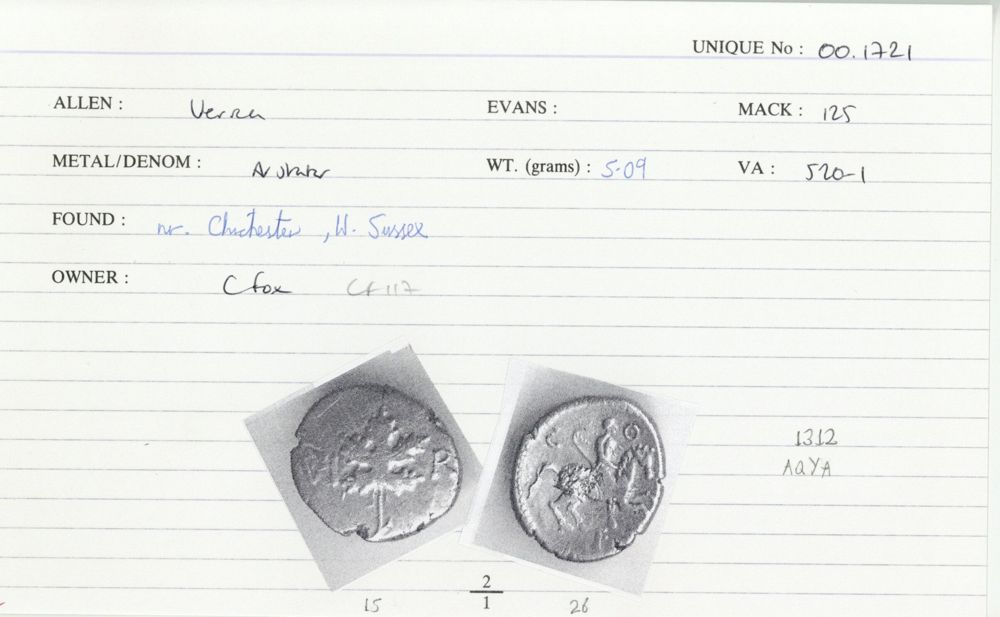 UNIQUE No : 00.1721
ALLEN : Verica EVANS : MACK : 125
METAL/DENOM : AV stater WT. (grams) : 5.09 VA : 520-1
FOUND : nr. Chichester, W. Sussex
OWNER : C Fox CF117
VI R
C O
1312
AQYA
2
1
15 26